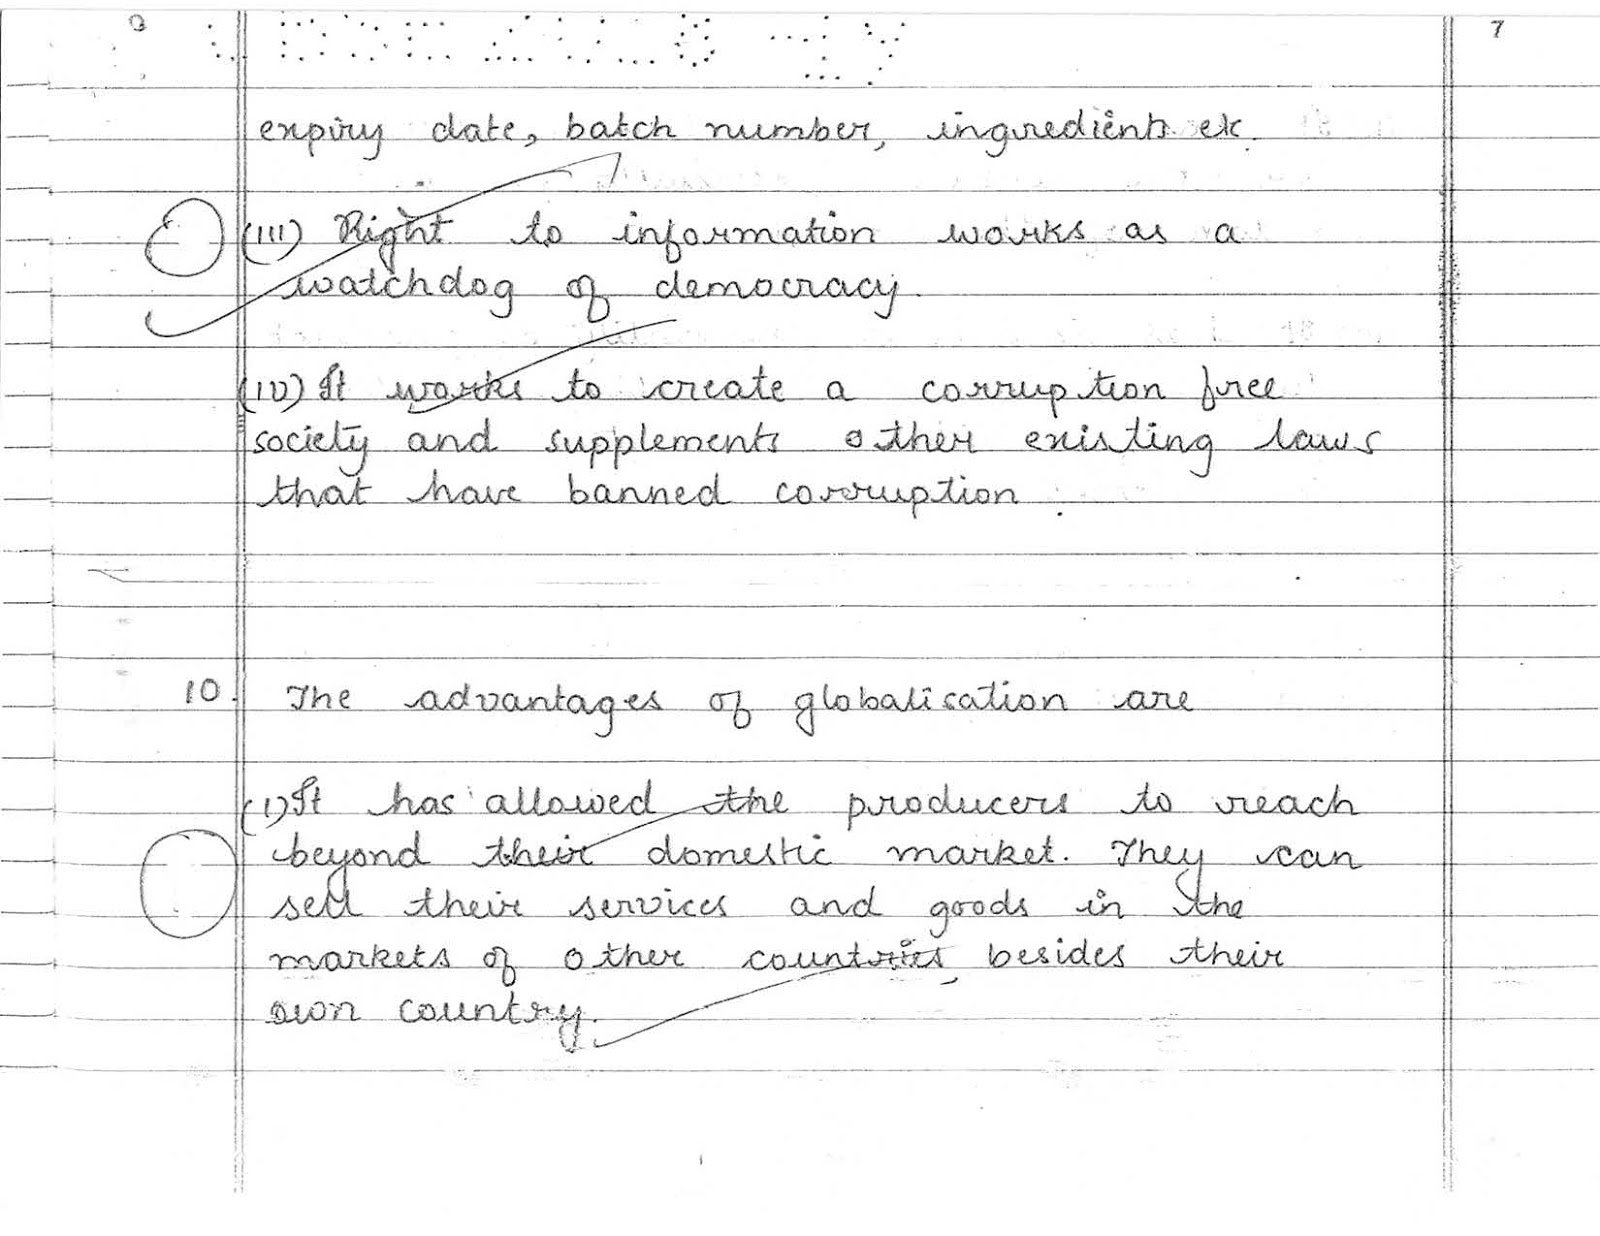 7
expiry date, batch number, ingredients etc.
(III) Right to information works as a
watchdog of democracy.
(IV) It works to create a corruption free
society and supplements other existing laws
that have banned corruption.
10. The advantages of globalisation are
(I) It has allowed the producers to reach
beyond their domestic market. They can
sell their services and goods in the
markets of other countries, besides their
own country.